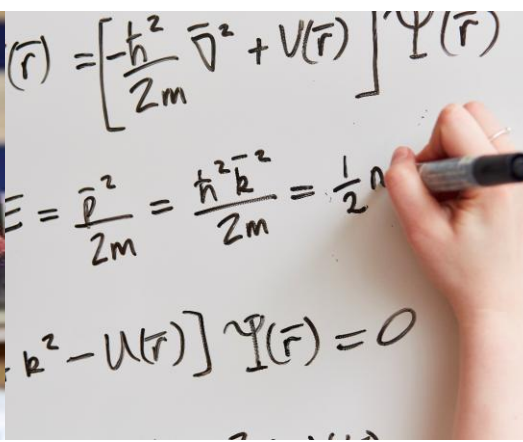 (r̄) = [-ħ²/2m ∇̄² + V(r̄)] Ψ(r̄)
E = p̄²/2m = ħ²k̄²/2m = 1/2
k² - U(r̄)] Ψ(r̄) = 0